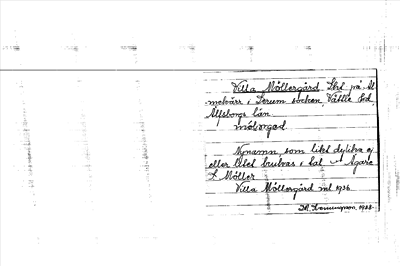 Villa Möllergård. Lht på Al
mekärr i Lerum socken, Vättle hd,
Älfsborgs län.
möllergad
Nynamn, som litet dylika ej
eller litet brukas i tal — Ägare
L Möller
Villa Möllergård ml 1936
1938.